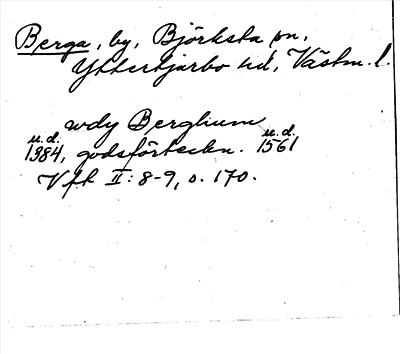 Berga, by, Björksta sn,
Yttertjurbo hd, Västm. l.
wdy Berghum
u.d. u.d.
1384, godsförteckn. 1561
Vft II: 8-9, s. 170.